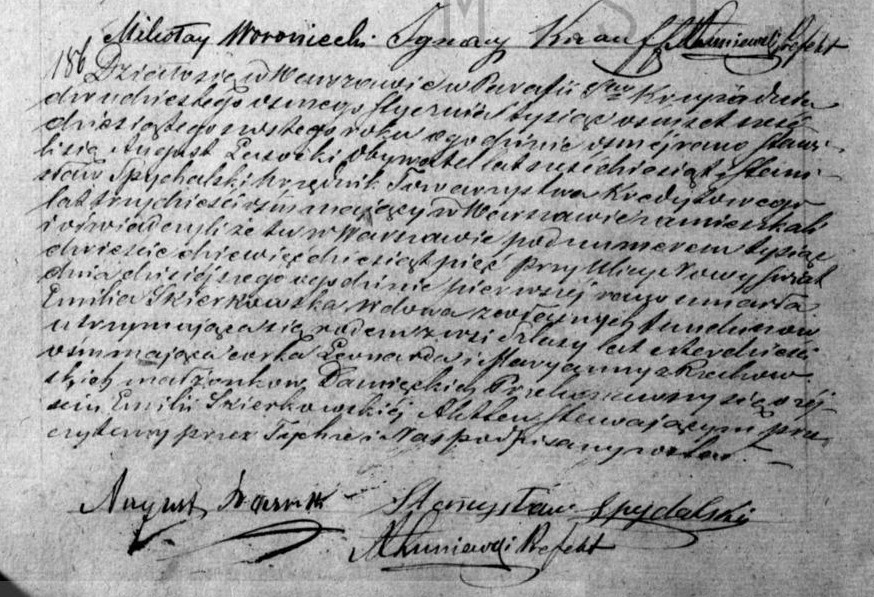 Mikołay Woroniecki Ignacy Krauss AKuniewski Prefekt
186 Działo się w Warszawie w Parafii Sgo Krzyża dnia
dwudziestego osmego Stycznia tysiąc osmset sześć
dziesiątego szostego roku o godzinie osmej rano Stawi-
li się August Lasocki Obywatel lat sześćdziesiąt i Stani-
sław Spychalski Urzędnik Towarzystwa Kredytowego
lat trzydzieści osm mający w Warszawie zamieszkali
i oświadczyli że tu w Warszawie pod numerem tysiąc
dwieście dziewięćdziesiąt pięć przy Ulicy Nowy Świat
dnia dzisiejszego o godzinie pierwszej rano umarła
Emilia Skierkowska Wdowa z własnych funduszow
utrzymująca się rodem z wsi lat czterdzieści
osm mająca corka Leonarda i Maryanny z Rzechow-
skich małżonkow Damięckich Przekonawszy się o zej-
ściu Emilii Skierkowskiej Akt ten Stawającym prze
czytany przez Tychże i Nas podpisany został
August Stanysław Spychalski
AKuniewski Prefekt